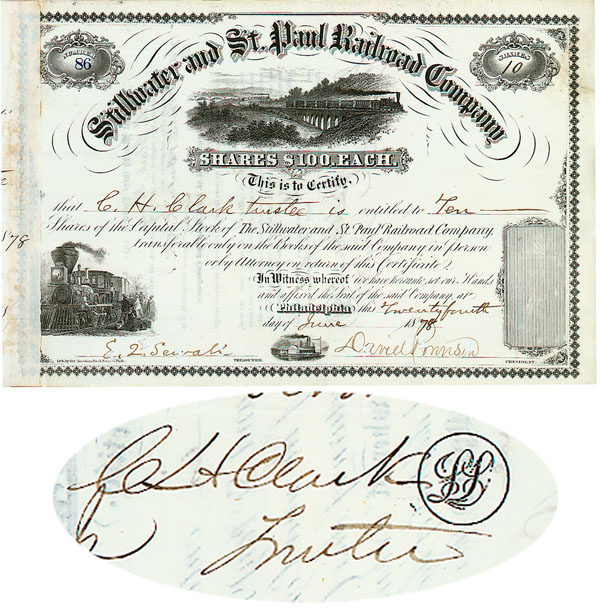 Stillwater and St. Paul Railroad Company
NUMBER
86
SHARES
10
SHARES $100. EACH.
This is to Certify,
that C. H. Clark trustee is entitled to Ten
Shares of the Capital Stock of The Stillwater and St. Paul Railroad Company,
transferable only on the Books of the said Company in person
or by Attorney on return of this Certificate.
In Witness whereof we have hereunto set our Hands
and affixed the Seal of the said Company, at
Philadelphia this twenty fourth
day of June 1878
878
TREASURER.
PRESIDENT.
C H Clark
Trustee